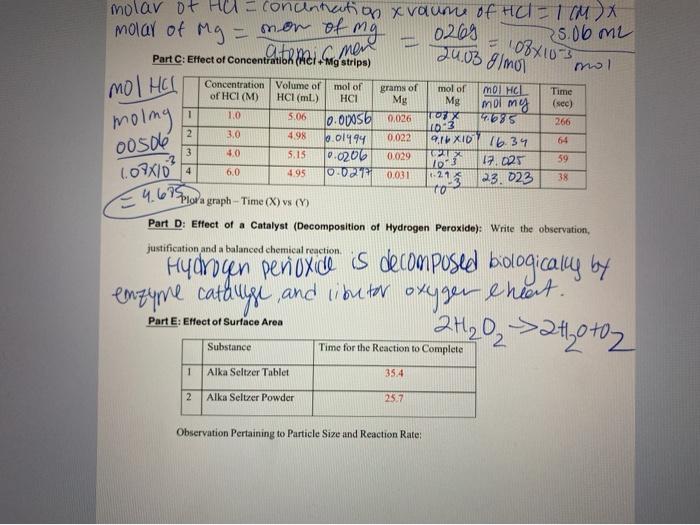 molar of HCl = concentration x volume of HCl = 1 (M) x
5.06 mL
molar of Mg = mass of mg = = 1.08x10-3
atomic mass 24.03 g/mol mol
Part C: Effect of Concentration (HCl + Mg strips)
mol HCl
molmg
00506
1.08X10-3
= 4.685
Concentration of HCl (M) Volume of HCl (mL) mol of HCl grams of Mg mol of Mg mol HCl mol mg Time (sec)
1 1.0 5.06 0.00056 0.026 1.08x 10-3 4.685 266
2 3.0 4.98 0.01494 0.022 9.16 X10-4 16.34 64
3 4.0 5.15 0.0206 0.029 1.21x 10-3 17.025 59
4 6.0 4.95 0.0297 0.031 1.29x 10-3 23.023 38
Plot a graph – Time (X) vs (Y)
Part D: Effect of a Catalyst (Decomposition of Hydrogen Peroxide): Write the observation,
justification and a balanced chemical reaction.
Hydrogen peroxide is decomposed biologically by
enzyme catalyse, and oxygen & heat.
2H2O2 → 2H2O+O2
Part E: Effect of Surface Area
Substance Time for the Reaction to Complete
1 Alka Seltzer Tablet 35.4
2 Alka Seltzer Powder 25.7
Observation Pertaining to Particle Size and Reaction Rate: